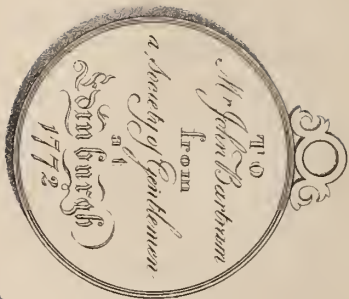 TO
Mr John Bartram
from
a Society of Gentlemen
at
Edinburgh
1772